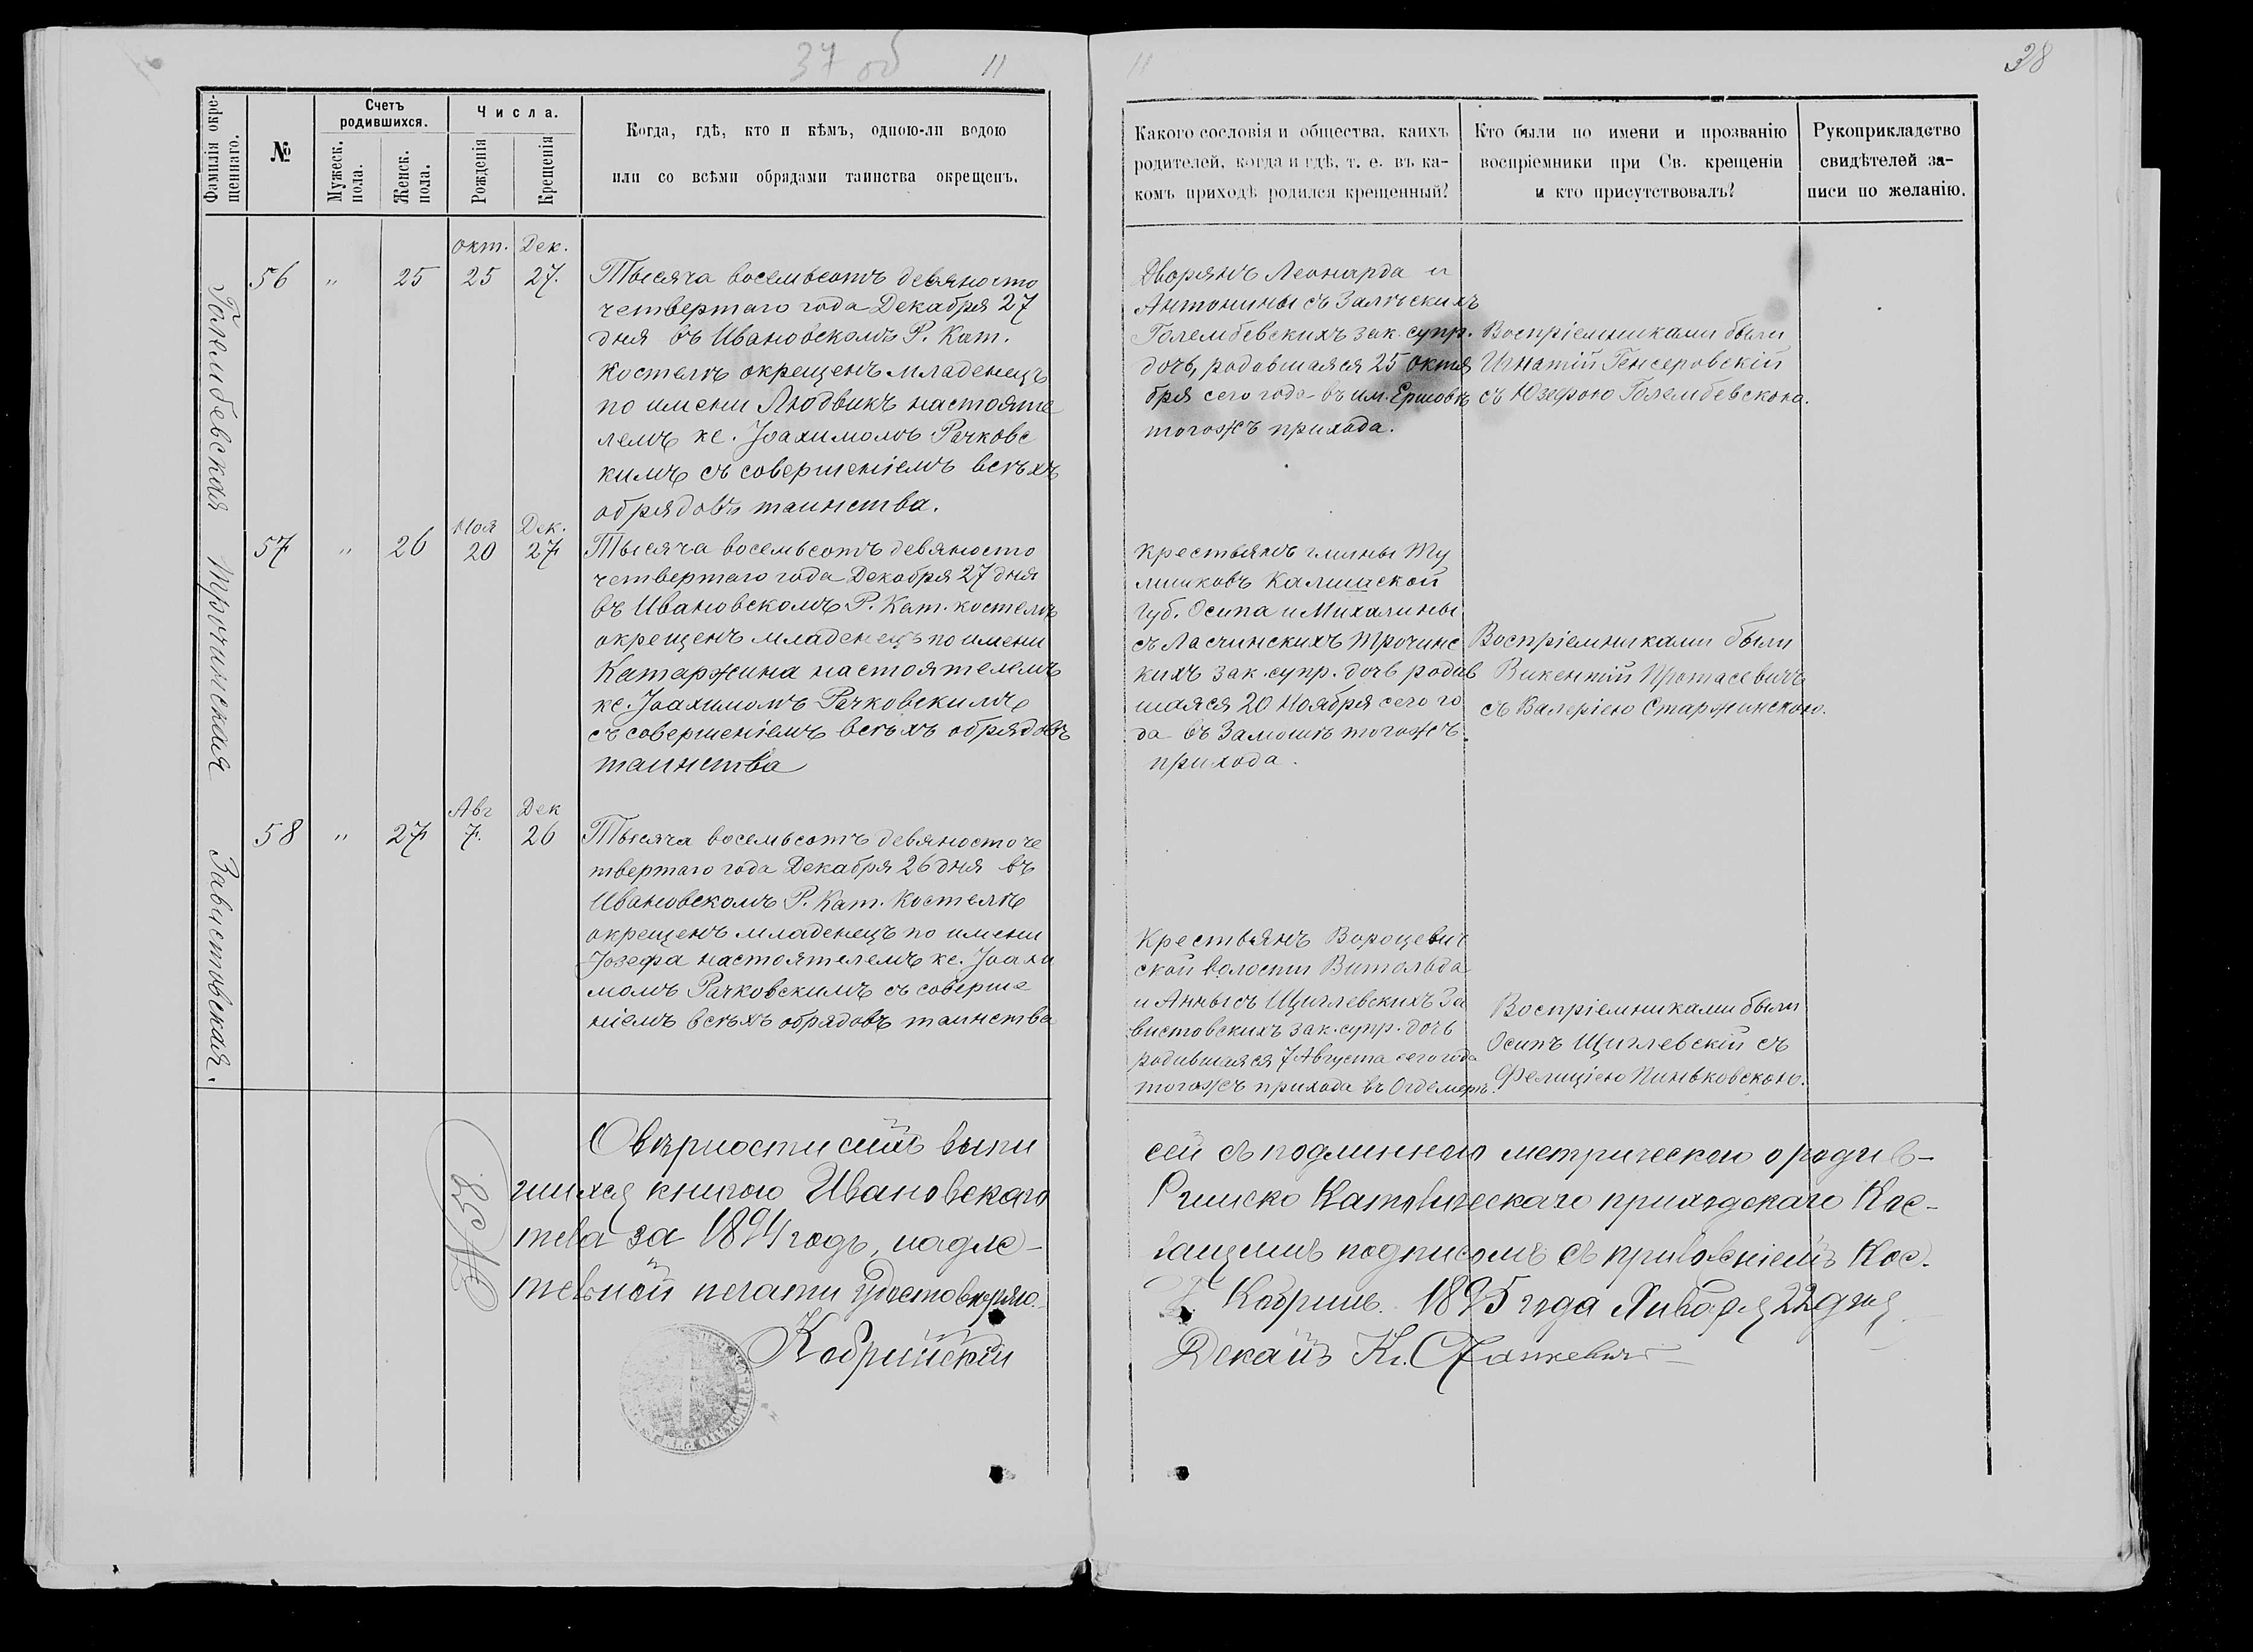 37 об
11
11
38
Фамилія окре-
щеннаго.
№
Счетъ
родившихся.
Мужеск.
пола.
Женск.
пола.
Числа.
Рожденія
Крещенія
Когда, гдѣ, кто и кѣмъ, одною-ли водою
или со всѣми обрядами таинства окрещенъ.
Какого сословія и общества, каихъ
родителей, когда и гдѣ, т. е. въ ка-
комъ приходѣ родился крещенный?
Кто были по имени и прозванію
воспріемники при Св. крещеніи
и кто присутствовалъ?
Рукоприкладство
свидѣтелей за-
писи по желанію.
Голембевская
56 " 25
Окт. 25
Дек. 27.
Тысяча восемьсотъ девяносто
четвертаго года Декабря 27
дня въ Ивановскомъ Р. Кат.
Костелѣ окрещенъ младенецъ
по имени Людвикъ настояте
лемъ кс. Іоахимомъ Рачковс
кимъ съ совершеніемъ всѣхъ
обрядовъ таинства.
Дворянъ Леонарда и
Антонины съ Залѣскихъ
Голембевскихъ зак. супр.
дочь, родовшаяся 25 октя
бря сего года въ им. Ершовѣ
тогожъ прихода.
Воспріемниками были
Игнатій Генсеровскій
съ Юзефою Голембевскою.
Трочинская
57 " 26
Ноя 20
Дек. 27
Тысяча восемьсотъ девяносто
четвертаго года Декабря 27 дня
въ Ивановскомъ Р. Кат. костелѣ
окрещенъ младенецъ по имени
Катаржина настоятелемъ
кс. Іоахимомъ Рачковскимъ
съ совершеніемъ всѣхъ обрядовъ
таинства
Крестьянъ гмины Ту
лишковъ Калишской
Губ. Осипа и Михалины
съ Ласчинскихъ Трочинс
кихъ зак. супр. дочь родив
шаяся 20 Ноября сего го
да въ Замошѣ тогожъ
прихода.
Воспріемниками были
Викентій Протасевичъ
съ Валеріею Старжинскою.
Завистовская.
58 " 27
Авг 7.
Дек 26
Тысяча восемьсотъ девяносто че
твертаго года Декабря 26 дня въ
Ивановскомъ Р. Кат. Костелѣ
окрещенъ младенецъ по имени
Іозефа настоятелемъ кс. Іоахи
момъ Рачковскимъ съ соверше
ніемъ всѣхъ обрядовъ таинства
Крестьянъ Вороцевич
ской волости Витольда
и Анны съ Щиглевскихъ За
вистовскихъ зак. супр. дочь
родившаяся 7 Августа сего года
тогожъ прихода въ Огдемерѣ.
Воспріемниками были
Осипъ Щиглевскій съ
Фелиціею Пиньковскою.
О вѣрности сихъ выпи
сей съ подлинною метрическою о родив-
шихся книгою Ивановскаго
Римско Католическаго приходскаго Кос-
тела за 1894 годъ, надле-
жащимъ подписомъ съ приложеніемъ Кос.
тельной печати удостовѣряю.
Г. Кобринъ. 1895 года Января 22 дня
№ 28
Кобринскій
Деканъ Кс.